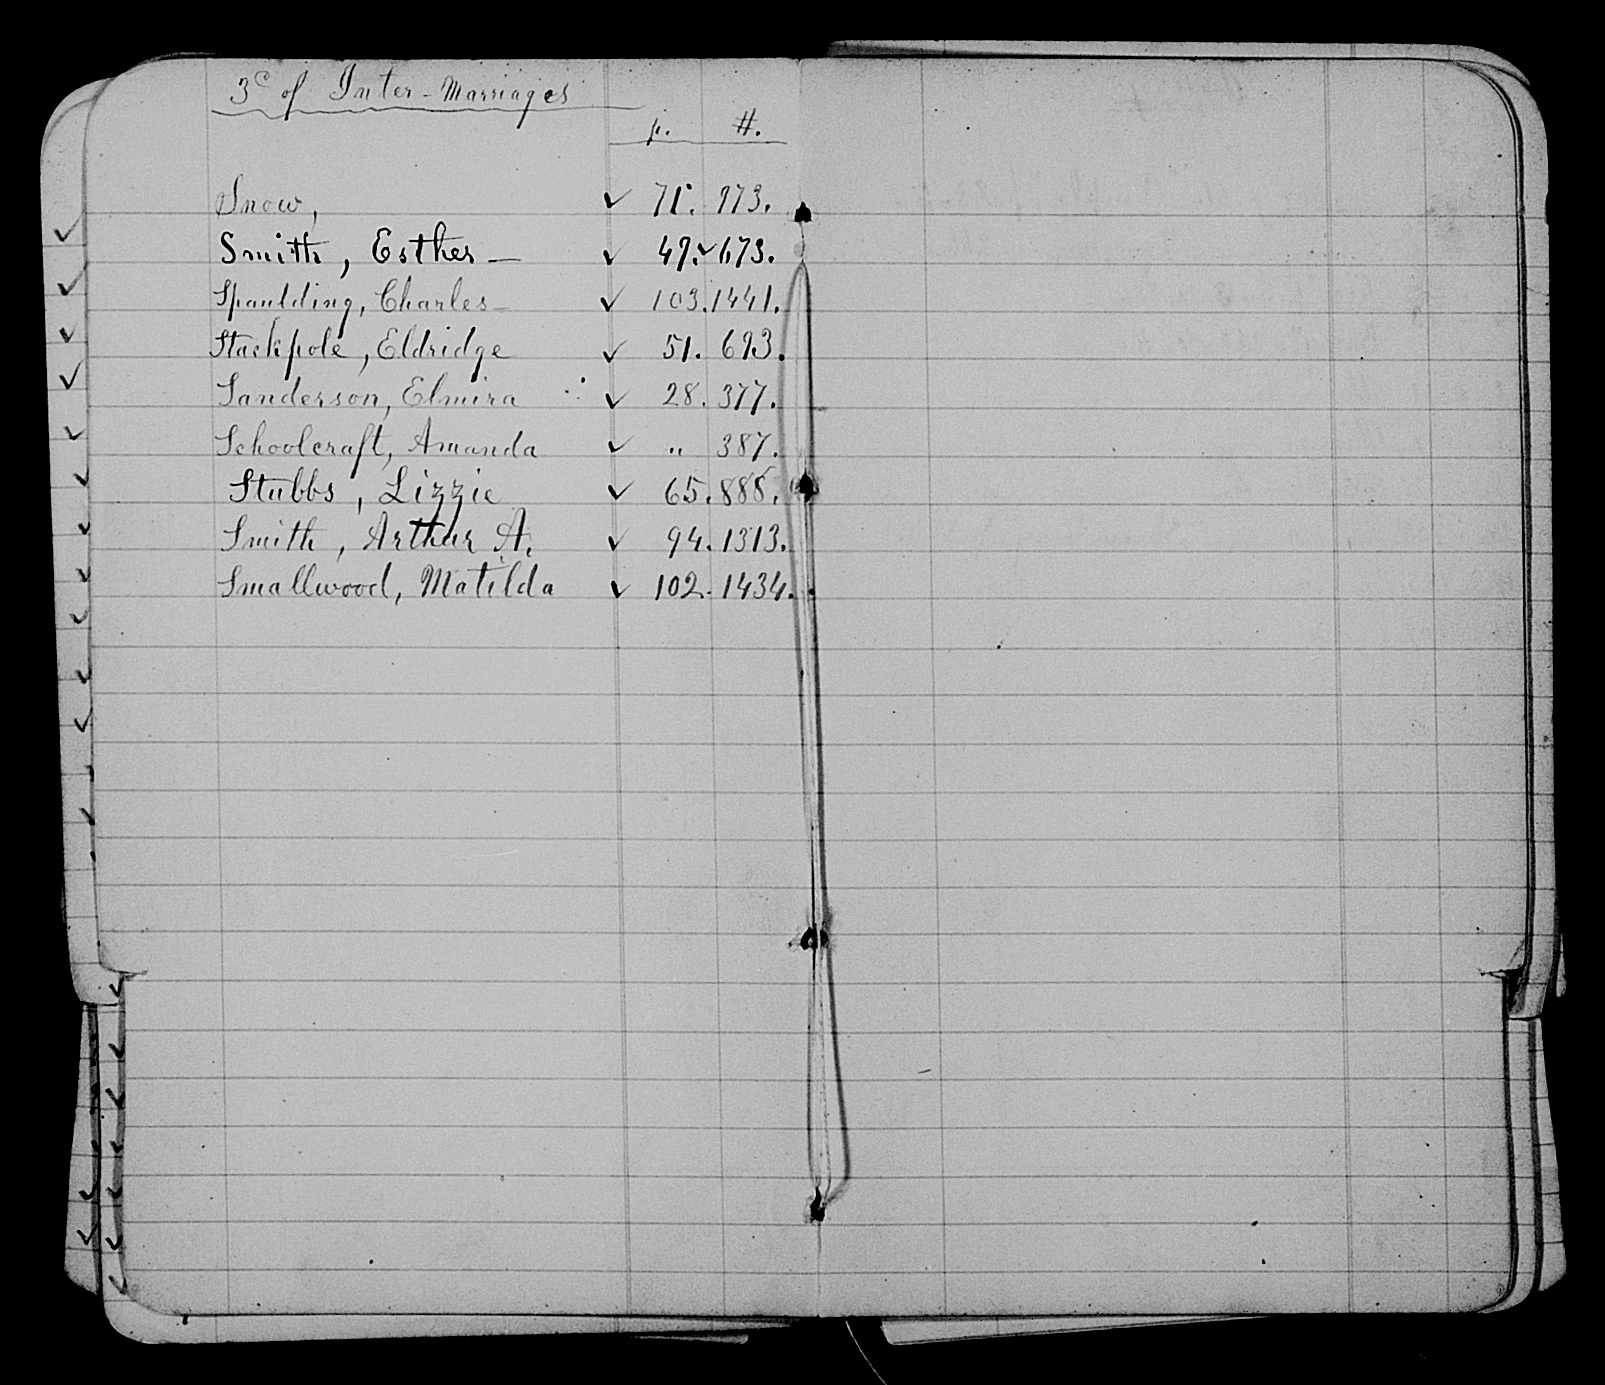 3ᶜ of Inter-Marriages
p. #.
Snow, ✓ 71. 973.
Smith, Esther — ✓ 49. ✓ 673.
Spaulding, Charles — ✓ 103. 1441.
Stackpole, Eldridge ✓ 51. 693.
Sanderson, Elmira ✓ 28. 377.
Schoolcraft, Amanda ✓ " 387.
Stubbs, Lizzie ✓ 65. 888.
Smith, Arthur A. ✓ 94. 1313.
Smallwood, Matilda ✓ 102. 1434.